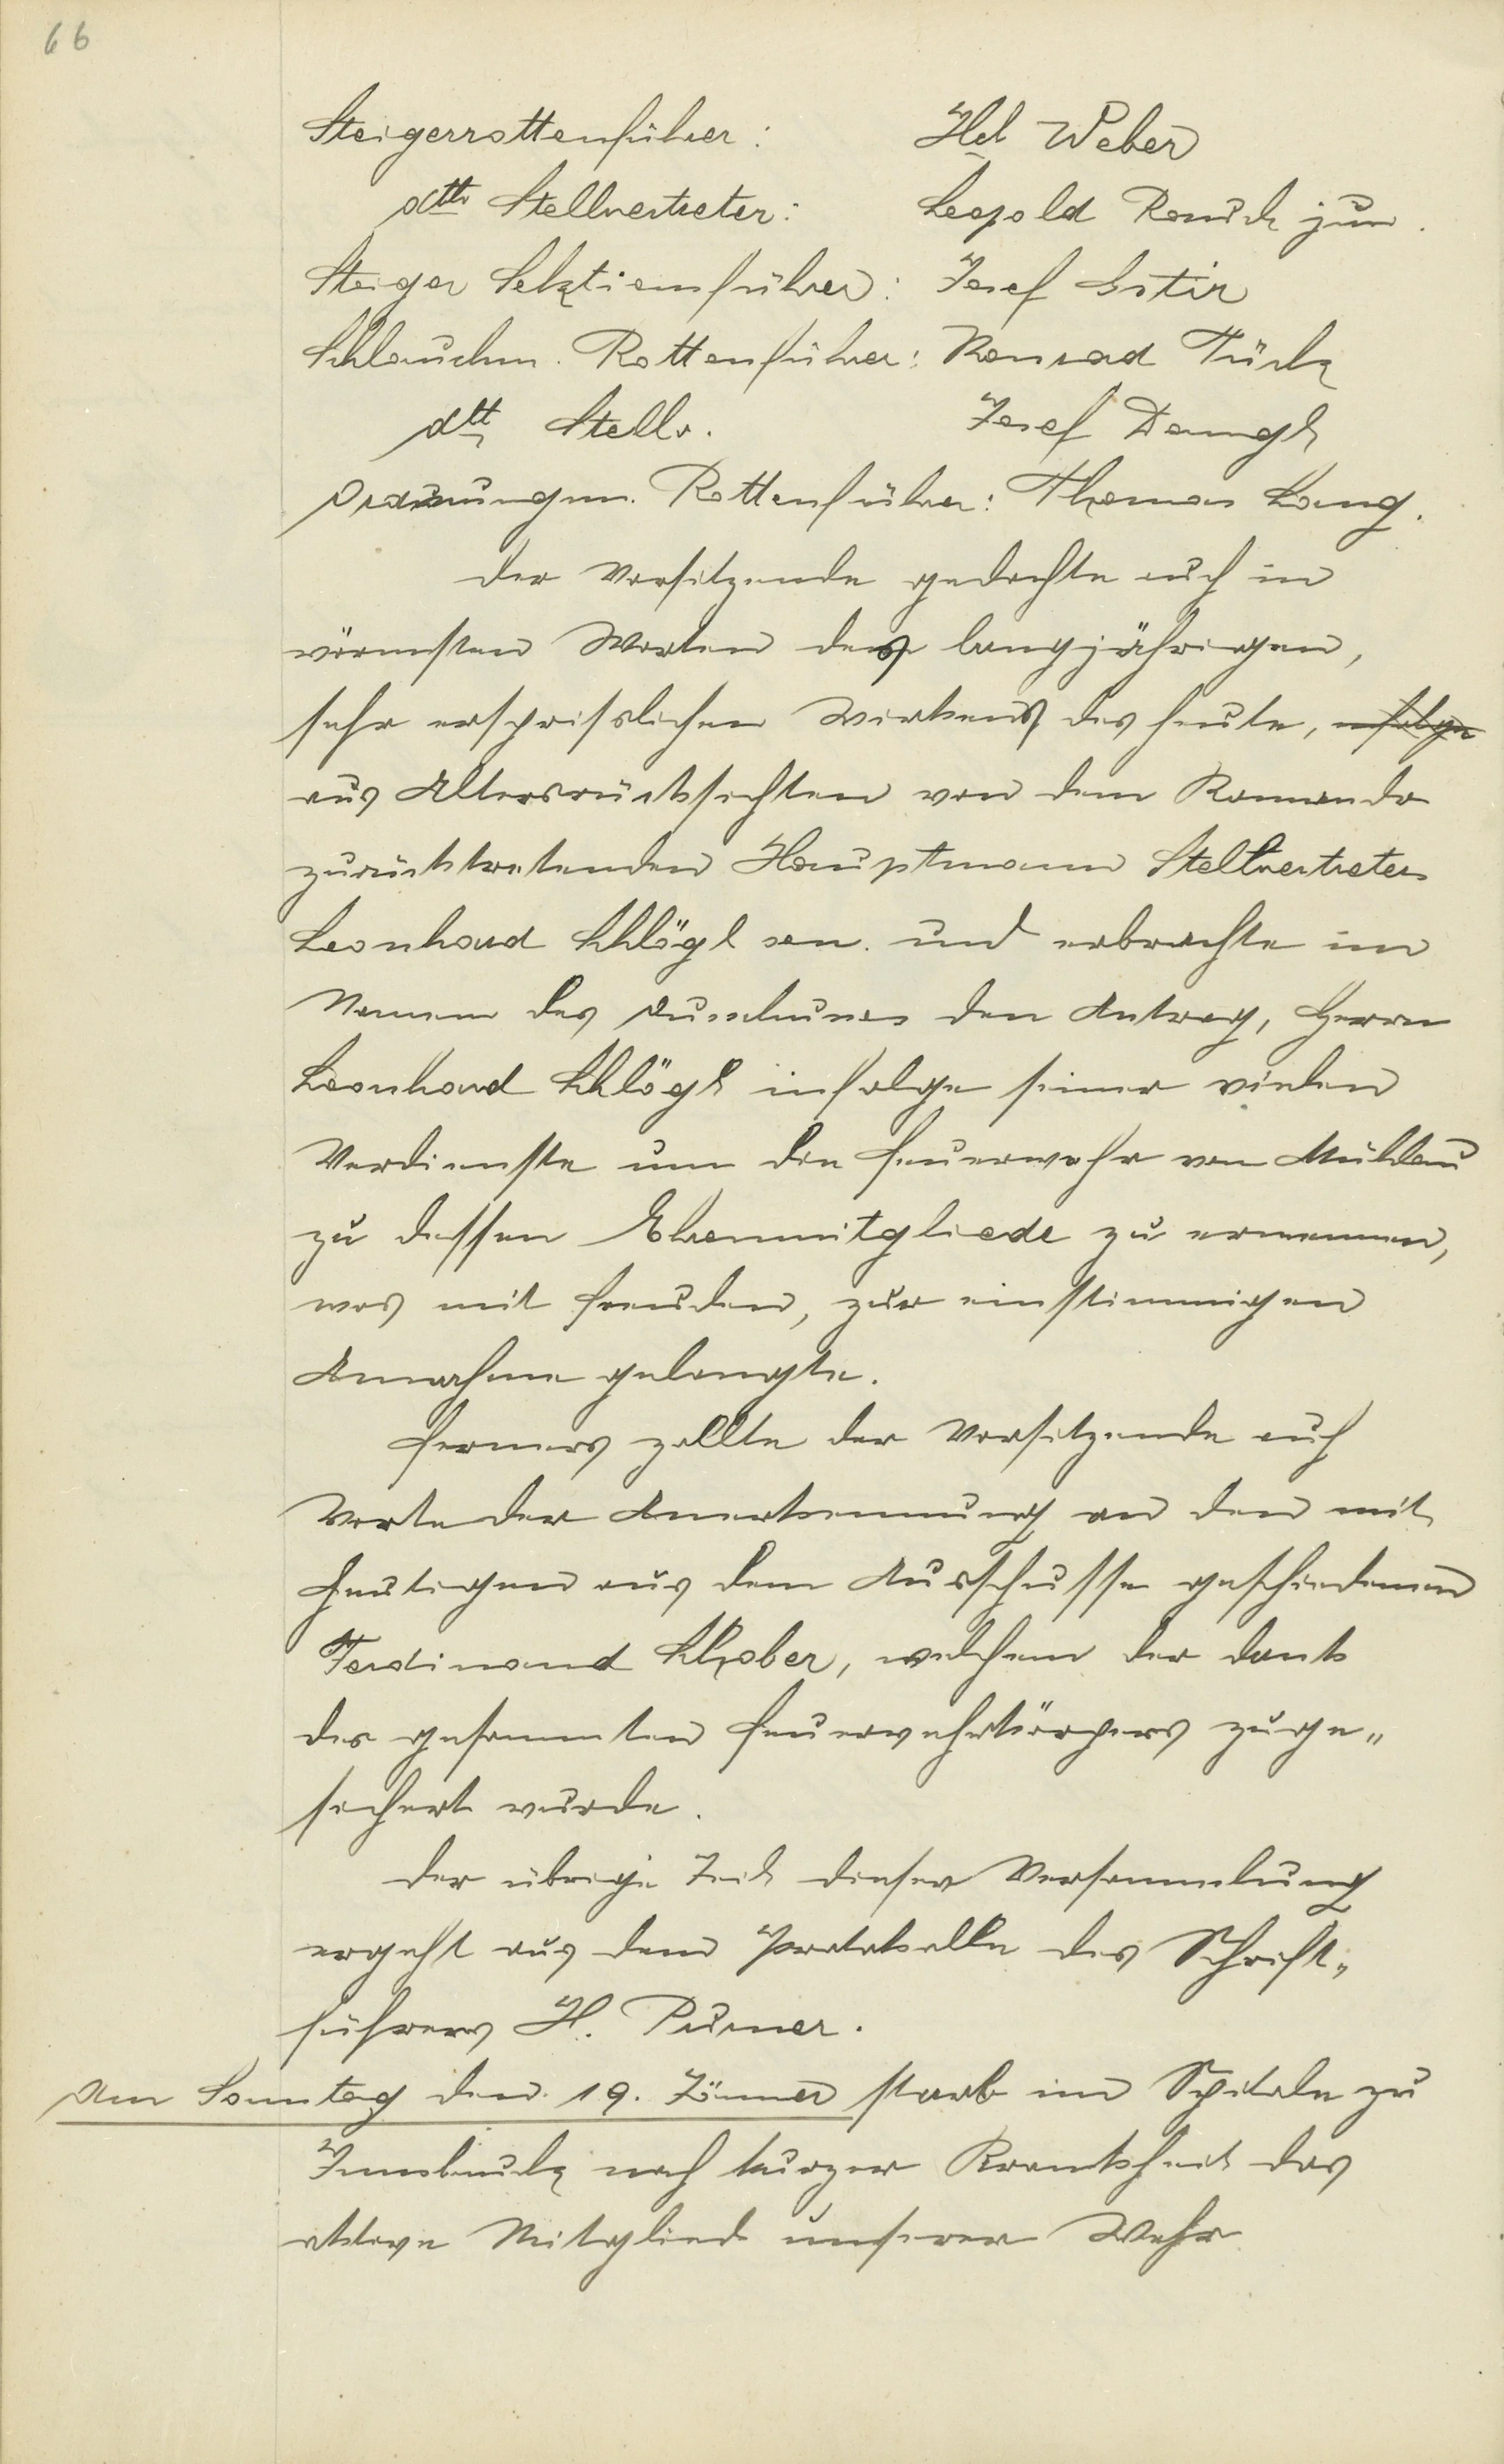 66
Steigerrottenführer: Hch Weber
dtto Stellvertreter: Leopold Rauch jun.
Steiger Sektionsführer: Josef
Schlauchm. Rottenführer: Konrad Tück
dtt Stellv. Josef Dangl
Ordnungsm. Rottenführer: Thomas Lang.
Der Vorsitzende gedachte auch in
wärmsten Worten des langjährigen,
sehr ersprißlichen Wirkens des heute, infolge
aus Altersrücksichten von dem Komando
zurücktretenden Hauptmann Stellvertreter
Leonhard Schlögl sen. und erbrachte im
Namen des Ausschusses den Antrag, Herrn
Leonhard Schlögl infolge seiner vielen
Verdienste um die Feuerwehr von Mühlau
zu dessen Ehrenmitgliede zu ernennen,
was mit Freuden, zur einstimmigen
Annahme gelangte.
Ferners zollte der Vorsitzende auch
Worte der Anerkennung an den mit
heutigen aus dem Ausschusse geschiedenen
Ferdinand Schober, welchem der Dank
des gesammten Feuerwehrkörpers zuge„
sichert wurde.
Der übrige Teil dieser Versammlung
ergeht aus dem Protokolle des Schrift„
führers H. Purner.
Am Sonntag den 19. Jänner starb im Spitale zu
Innsbruck nach kurzer Krankheit das
aktive Mitglied unserer Wehr